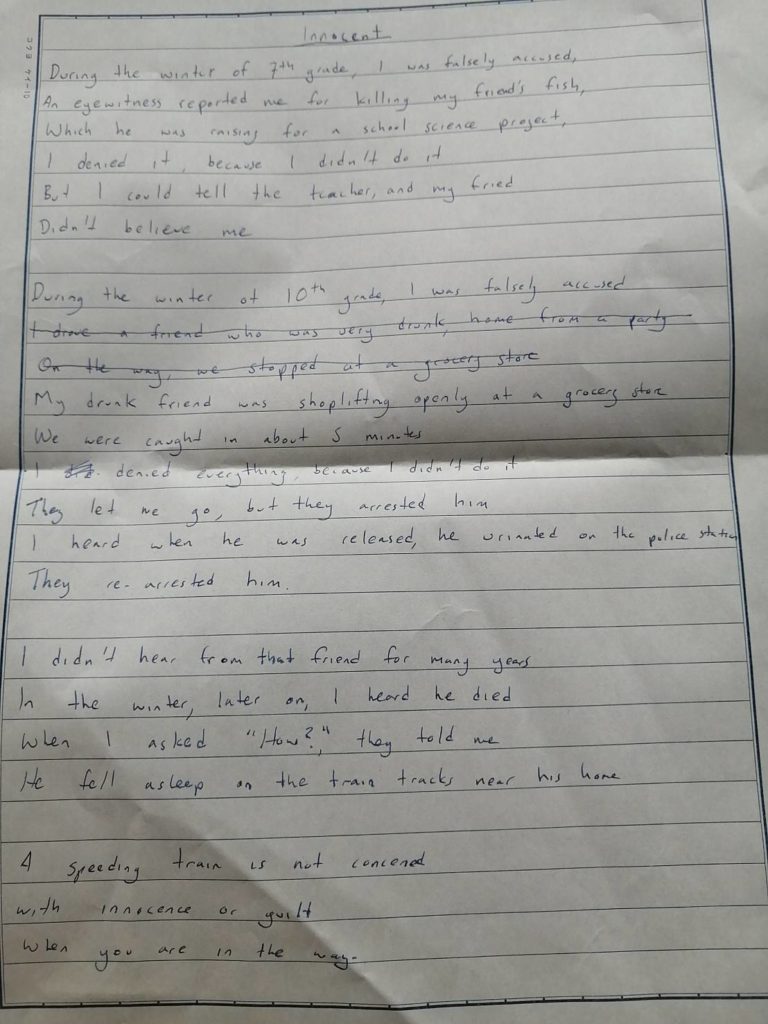 Innocent
During the winter of 7th grade, I was falsely accused,
An eyewitness reported me for killing my friend's fish,
Which he was raising for a school science project,
I denied it, because I didn't do it
But I could tell the teacher, and my fried
Didn't believe me
During the winter of 10th grade, I was falsely accused
I drove a friend who was very drunk, home from a party
On the way, we stopped at a grocery store
My drunk friend was shoplifting openly at a grocery store
We were caught in about 5 minutes
I denied everything, because I didn't do it
They let me go, but they arrested him
I heard when he was released, he urinated on the police station
They re-arrested him.
I didn't hear from that friend for many years
In the winter, later on, I heard he died
When I asked "How?," they told me
He fell asleep on the train tracks near his home
A speeding train is not concened
with innocence or guilt
When you are in the way.